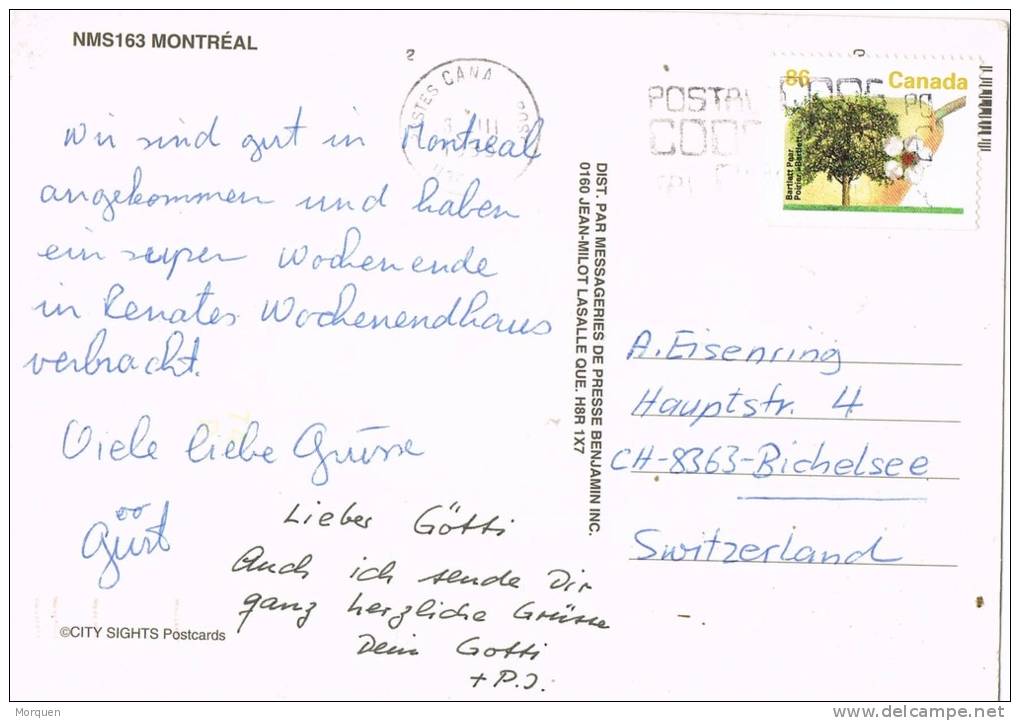 NMS163 MONTRÉAL
Wir sind gut in Montreal
angekommen und haben
ein super Wochenende
in Renates Wochenendhaus
verbracht.
Viele liebe Grüsse
Lieber Götti
Auch ich sende Dir
ganz herzliche Grüsse
Dein Gotti
+ P.J.
©CITY SIGHTS Postcards
DIST. PAR MESSAGERIES DE PRESSE BENJAMIN INC.
0160 JEAN-MILOT LASALLE QUE. H8R 1X7
POSTES CANA
POSTAL CODE
86 Canada
Bartlett Pear
A. Eisenring
Hauptstr. 4
CH-8363-Bichelsee
Switzerland
Morquen
delcampe.net